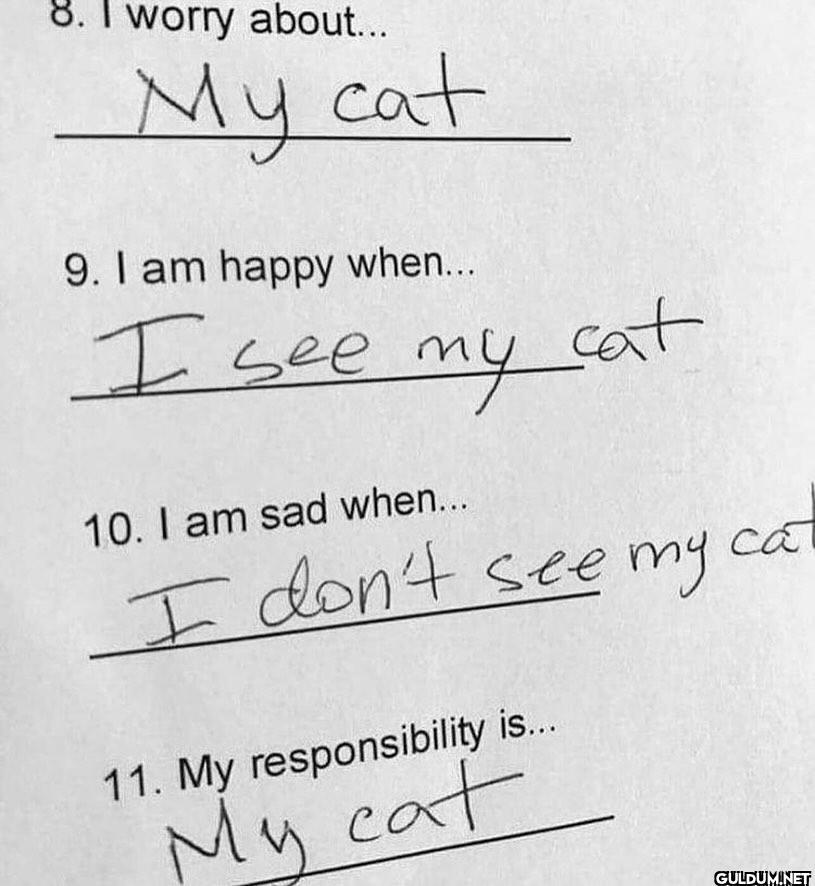 8. I worry about...
My cat
9. I am happy when...
I see my cat
10. I am sad when...
I don't see my cat
11. My responsibility is...
My cat
GULDUM.NET